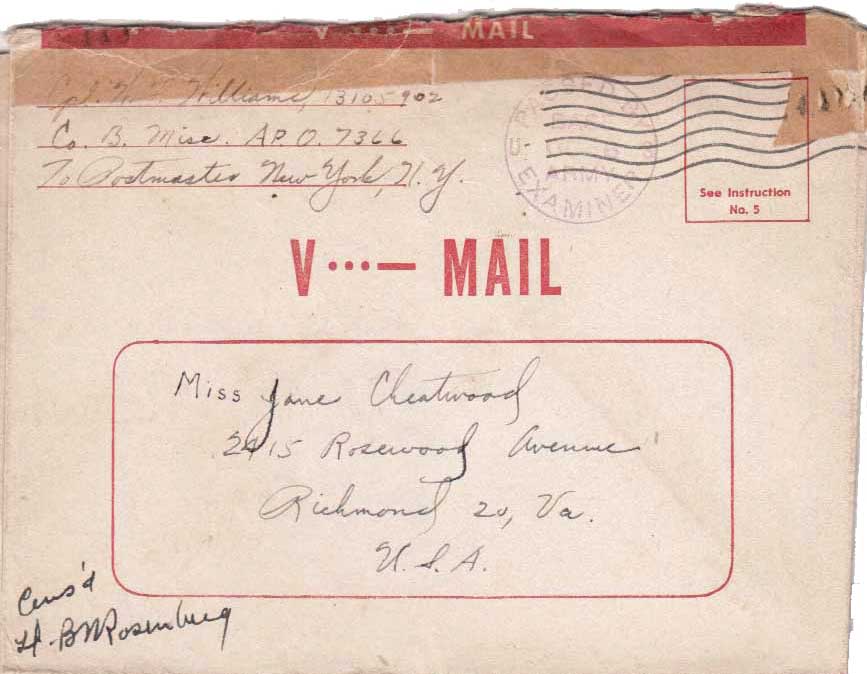 V ···— MAIL
Cpl. W. Williams, 13105902
Co. B. Misc. A.P.O. 7366
To Postmaster New York, N.Y.
PASSED BY
BASE
U.S. ARMY
EXAMINER
See Instruction
No. 5
V ···— MAIL
Miss Jane Cheatwood
2915 Rosewood Avenue
Richmond 20, Va.
U.S.A.
Cens'd
Lt. BMRosenberg